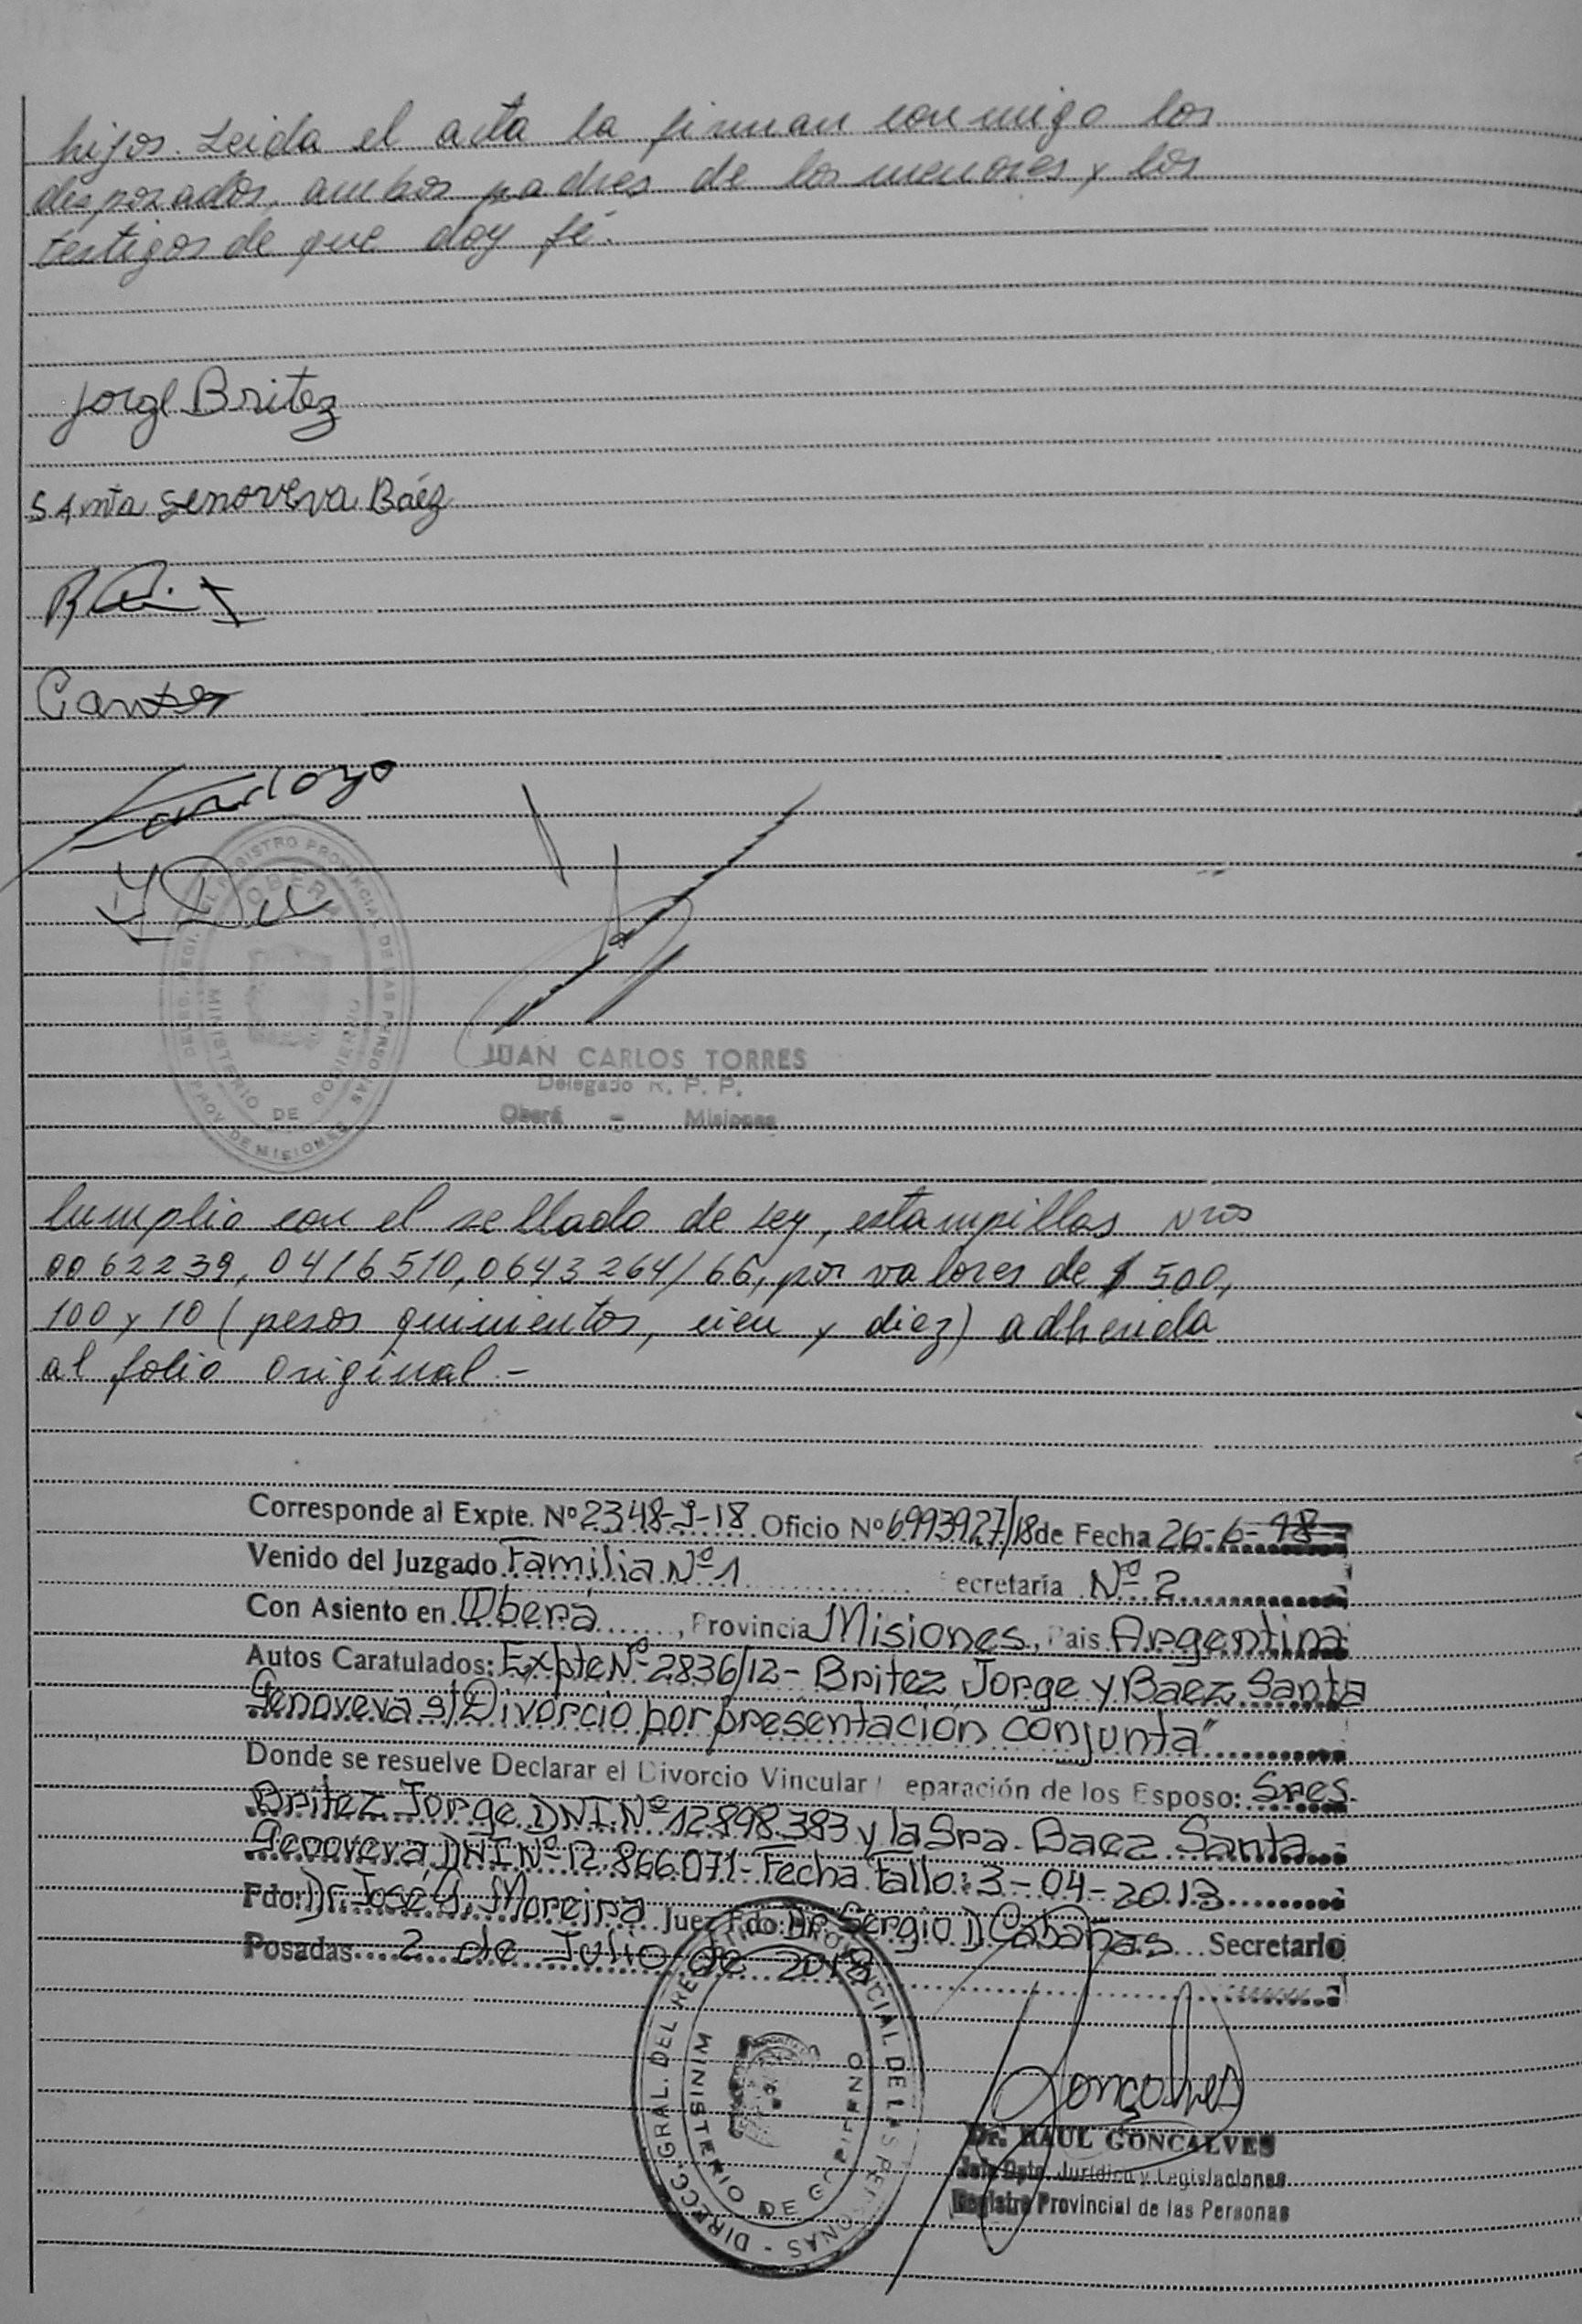 hijos. Leida el acta la firman conmigo los
desposados, ambos padres de los menores y los
testigos de que doy fé.
Jorge Britez
SAnta Genoveva Báez
JUAN CARLOS TORRES
Delegado R. P. P.
Oberá - Misiones
REGISTRO PROVINCIAL DE LAS PERSONAS
OBERA
MINISTERIO DE GOBIERNO
PROV. DE MISIONES
Cumplio con el sellado de Ley, estampillas Nros
0062239, 0416510, 0643264/66, por valores de $ 500,
100 y 10 (pesos quinientos, cien y diez) adherida
al folio original.-
Corresponde al Expte. Nº 2348-J-18 Oficio Nº 6993927/18 de Fecha 26-6-18
Venido del Juzgado Familia Nº 1 ecretaría Nº 2
Con Asiento en Oberá, Provincia Misiones, Pais Argentina
Autos Caratulados: Expte Nº 2836/12- Britez Jorge y Baez Santa
Genoveva s/ Divorcio por presentación conjunta"
Donde se resuelve Declarar el Divorcio Vincular / eparación de los Esposo: Sres.
Britez Jorge DNI Nº 12.898.383 y la Sra. Baez Santa
Genoveva DNI Nº 12.866.071- Fecha Fallo: 3-04-2013
Fdo: Dr. José G. Moreira Juez Fdo: Dr. Sergio D Cabañas Secretario
Posadas 2 de Julio de 2018
DIRECC. GRAL. DEL REGISTRO PROVINCIAL DE LAS PERSONAS
MINISTERIO DE GOBIERNO
Goncalves
Dr. RAUL GONCALVES
Jefe Dpto. Jurídico y Legislaciones
Registro Provincial de las Personas